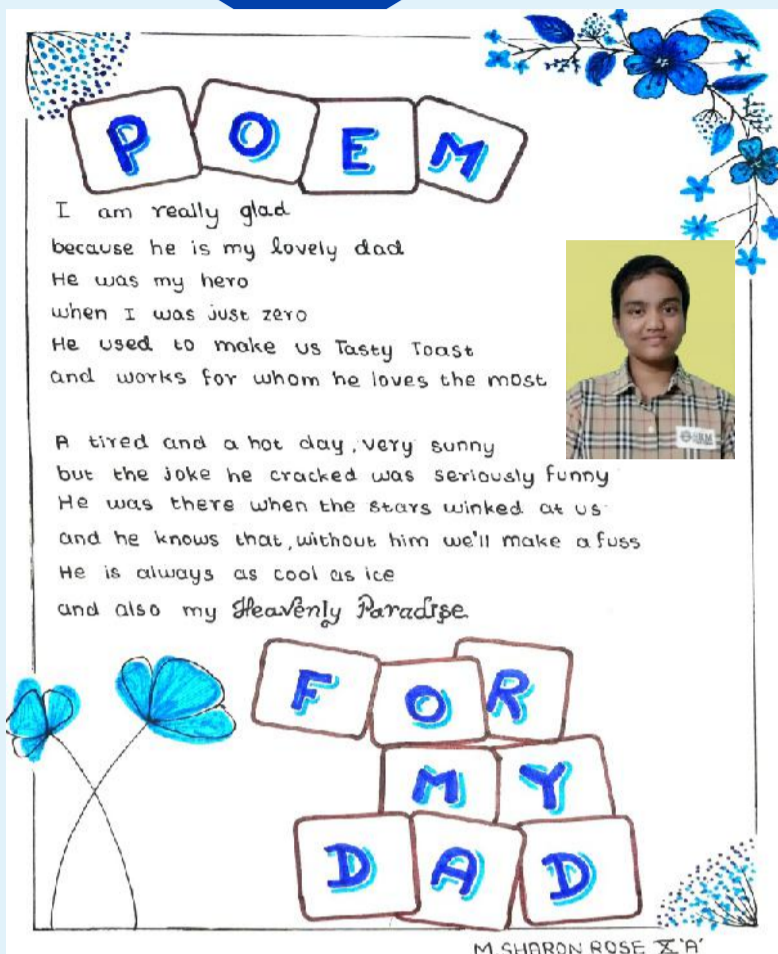 POEM
I am really glad
because he is my lovely dad
He was my hero
when I was just zero
He used to make us Tasty Toast
and works for whom he loves the most
SRM
A tired and a hot day, very sunny
but the joke he cracked was seriously funny
He was there when the stars winked at us
and he knows that, without him we'll make a fuss
He is always as cool as ice
and also my Heavenly Paradise
FOR
MY
DAD
M.SHARON ROSE X 'A'